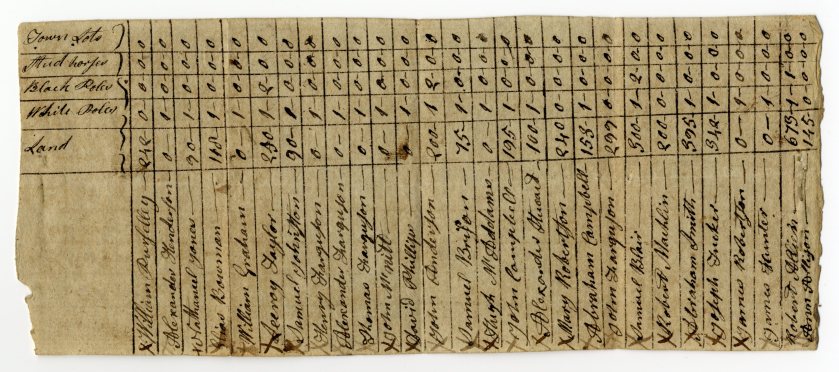 Town Lots
Stud horses
Black Poles
White Poles
Land
X William Purselley 242-0-0-0-0
Alexander Henderson 0-1-0-0-0
X Nathaniel Jones 90-1-0-0-0
X Bowman 118-1-0-0-0
X William Graham 0-1-0-0-0
X Leeroy Taylor 230-1-2-0-0
X Samuel Johnston 90-1-0-0-0
X Henry Farguson 0-1-0-0-0
Alexander Farguson 0-1-0-0-0
X Thomas Farguson 0-1-0-0-0
X John McNill 0-1-0-0-0
X David Phillips 0-1-0-0-0
X John Anderson 200-1-2-0-0
X Samuel Brison 75-1-0-0-0
X Hugh McAddams 0-1-0-0-0
X John Campbell 195-1-0-0-0
X Alexander Stuard 100-1-0-0-0
X Mary Robertson 240-0-0-0-0
X Abraham Campbell 153-1-0-0-0
X John Farguson 299-0-0-0-0
X Samuel Blair 300-1-2-0-0
X Robert Macklin 200-0-0-0-0
X Abraham Smith 395-1-0-0-0
X Joseph Tucker 342-1-0-0-0
X James Robertson 0-1-0-0-0
X James Hunter 0-1-0-0-0
Robert Allison 673-1-1-0-0
Ann Allison 145-0-0-0-0